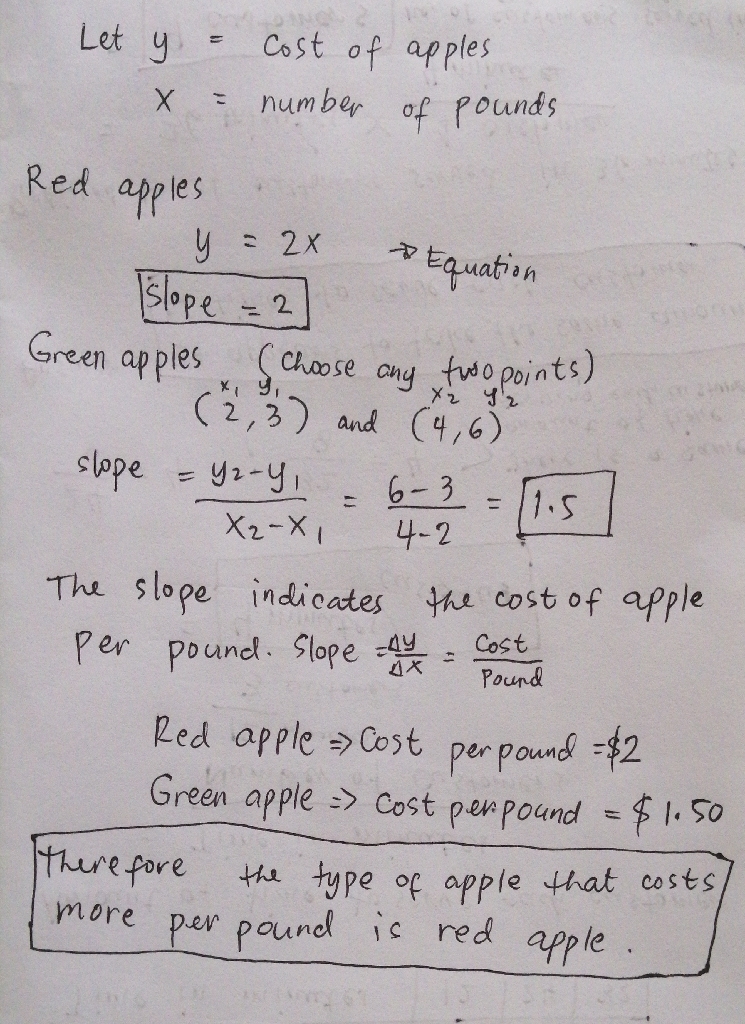 Let y = Cost of apples
X = number of pounds
Red apples
y = 2x → Equation
Slope = 2
Green apples (Choose any two points)
x₁ y₁ x₂ y₂
(2,3) and (4,6)
slope = y₂-y₁ / x₂-x₁ = 6-3 / 4-2 = 1.5
The slope indicates the cost of apple
Per pound. Slope = Δy/Δx = Cost/Pound
Red apple => Cost per pound = $2
Green apple => Cost per pound = $1.50
Therefore the type of apple that costs
more per pound is red apple.